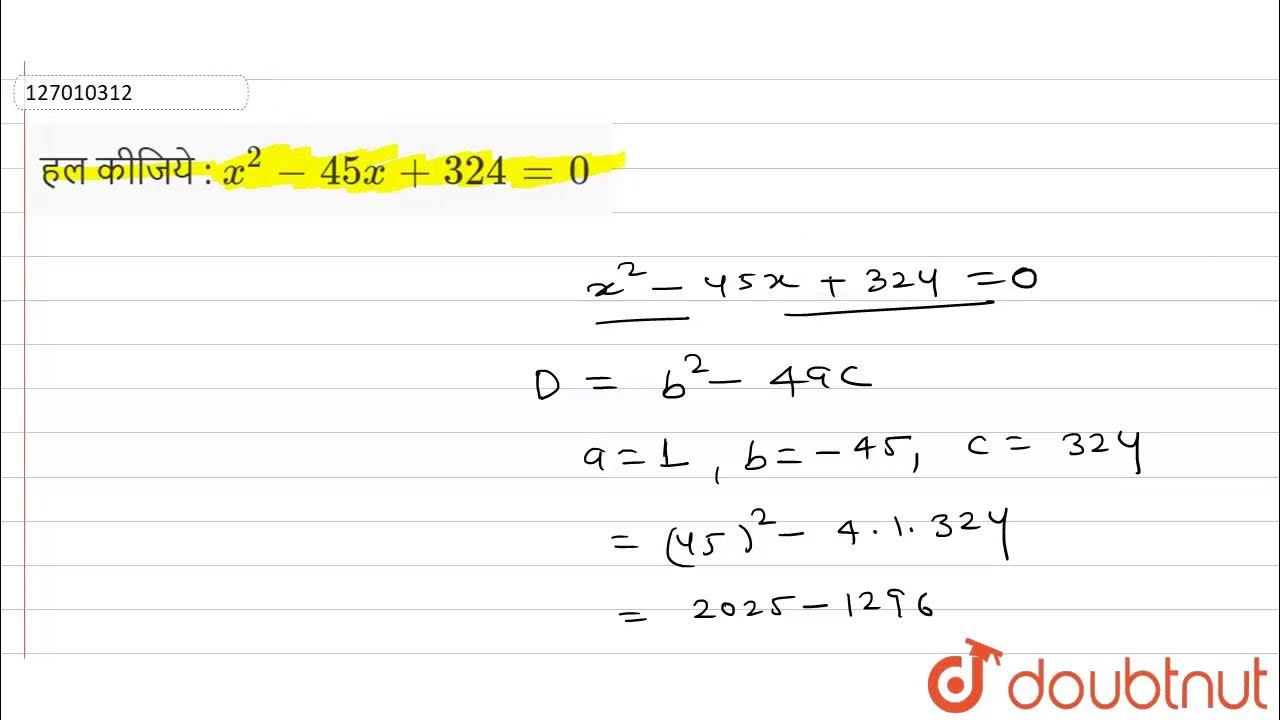 127010312
हल कीजिये : x² − 45x + 324 = 0
x² − 45x + 324 = 0
D = b² − 4ac
a = 1, b = − 45, c = 324
= (45)² − 4 . 1 . 324
= 2025 − 1296
doubtnut